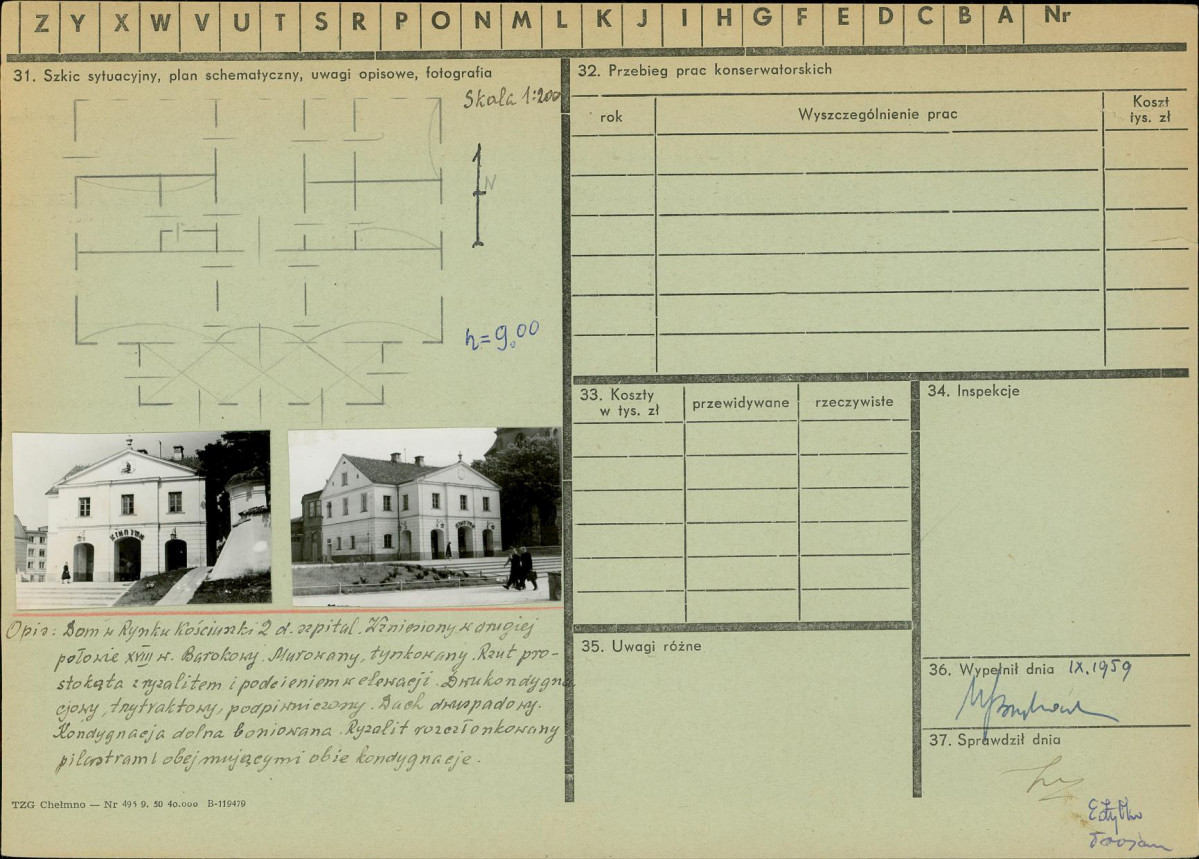 Z Y X W V U T S R P O N M L K J I H G F E D C B A Nr
31. Szkic sytuacyjny, plan schematyczny, uwagi opisowe, fotografia
Skala 1:200
N
h=9.00
KINO TON
KINO TON
Opis: Dom w Rynku Kościuszki 2 d. szpital. Wzniesiony w drugiej
połowie XVIII w. Barokowy. Murowany, tynkowany. Rzut pro-
stokąta z ryzalitem i podcieniem w elewacji. Dwukondygna
cjowy, trzytraktowy, podpiwniczony. Dach dwuspadowy.
Kondygnacja dolna boniowana. Ryzalit rozczłonkowany
pilastrami obejmującymi obie kondygnacje.
TZG Chełmno — Nr 495 9. 50 40.000 B-119479
32. Przebieg prac konserwatorskich
rok Wyszczególnienie prac Koszt
tys. zł
33. Koszty
w tys. zł przewidywane rzeczywiste
34. Inspekcje
35. Uwagi różne
36. Wypełnił dnia IX.1959
37. Sprawdził dnia